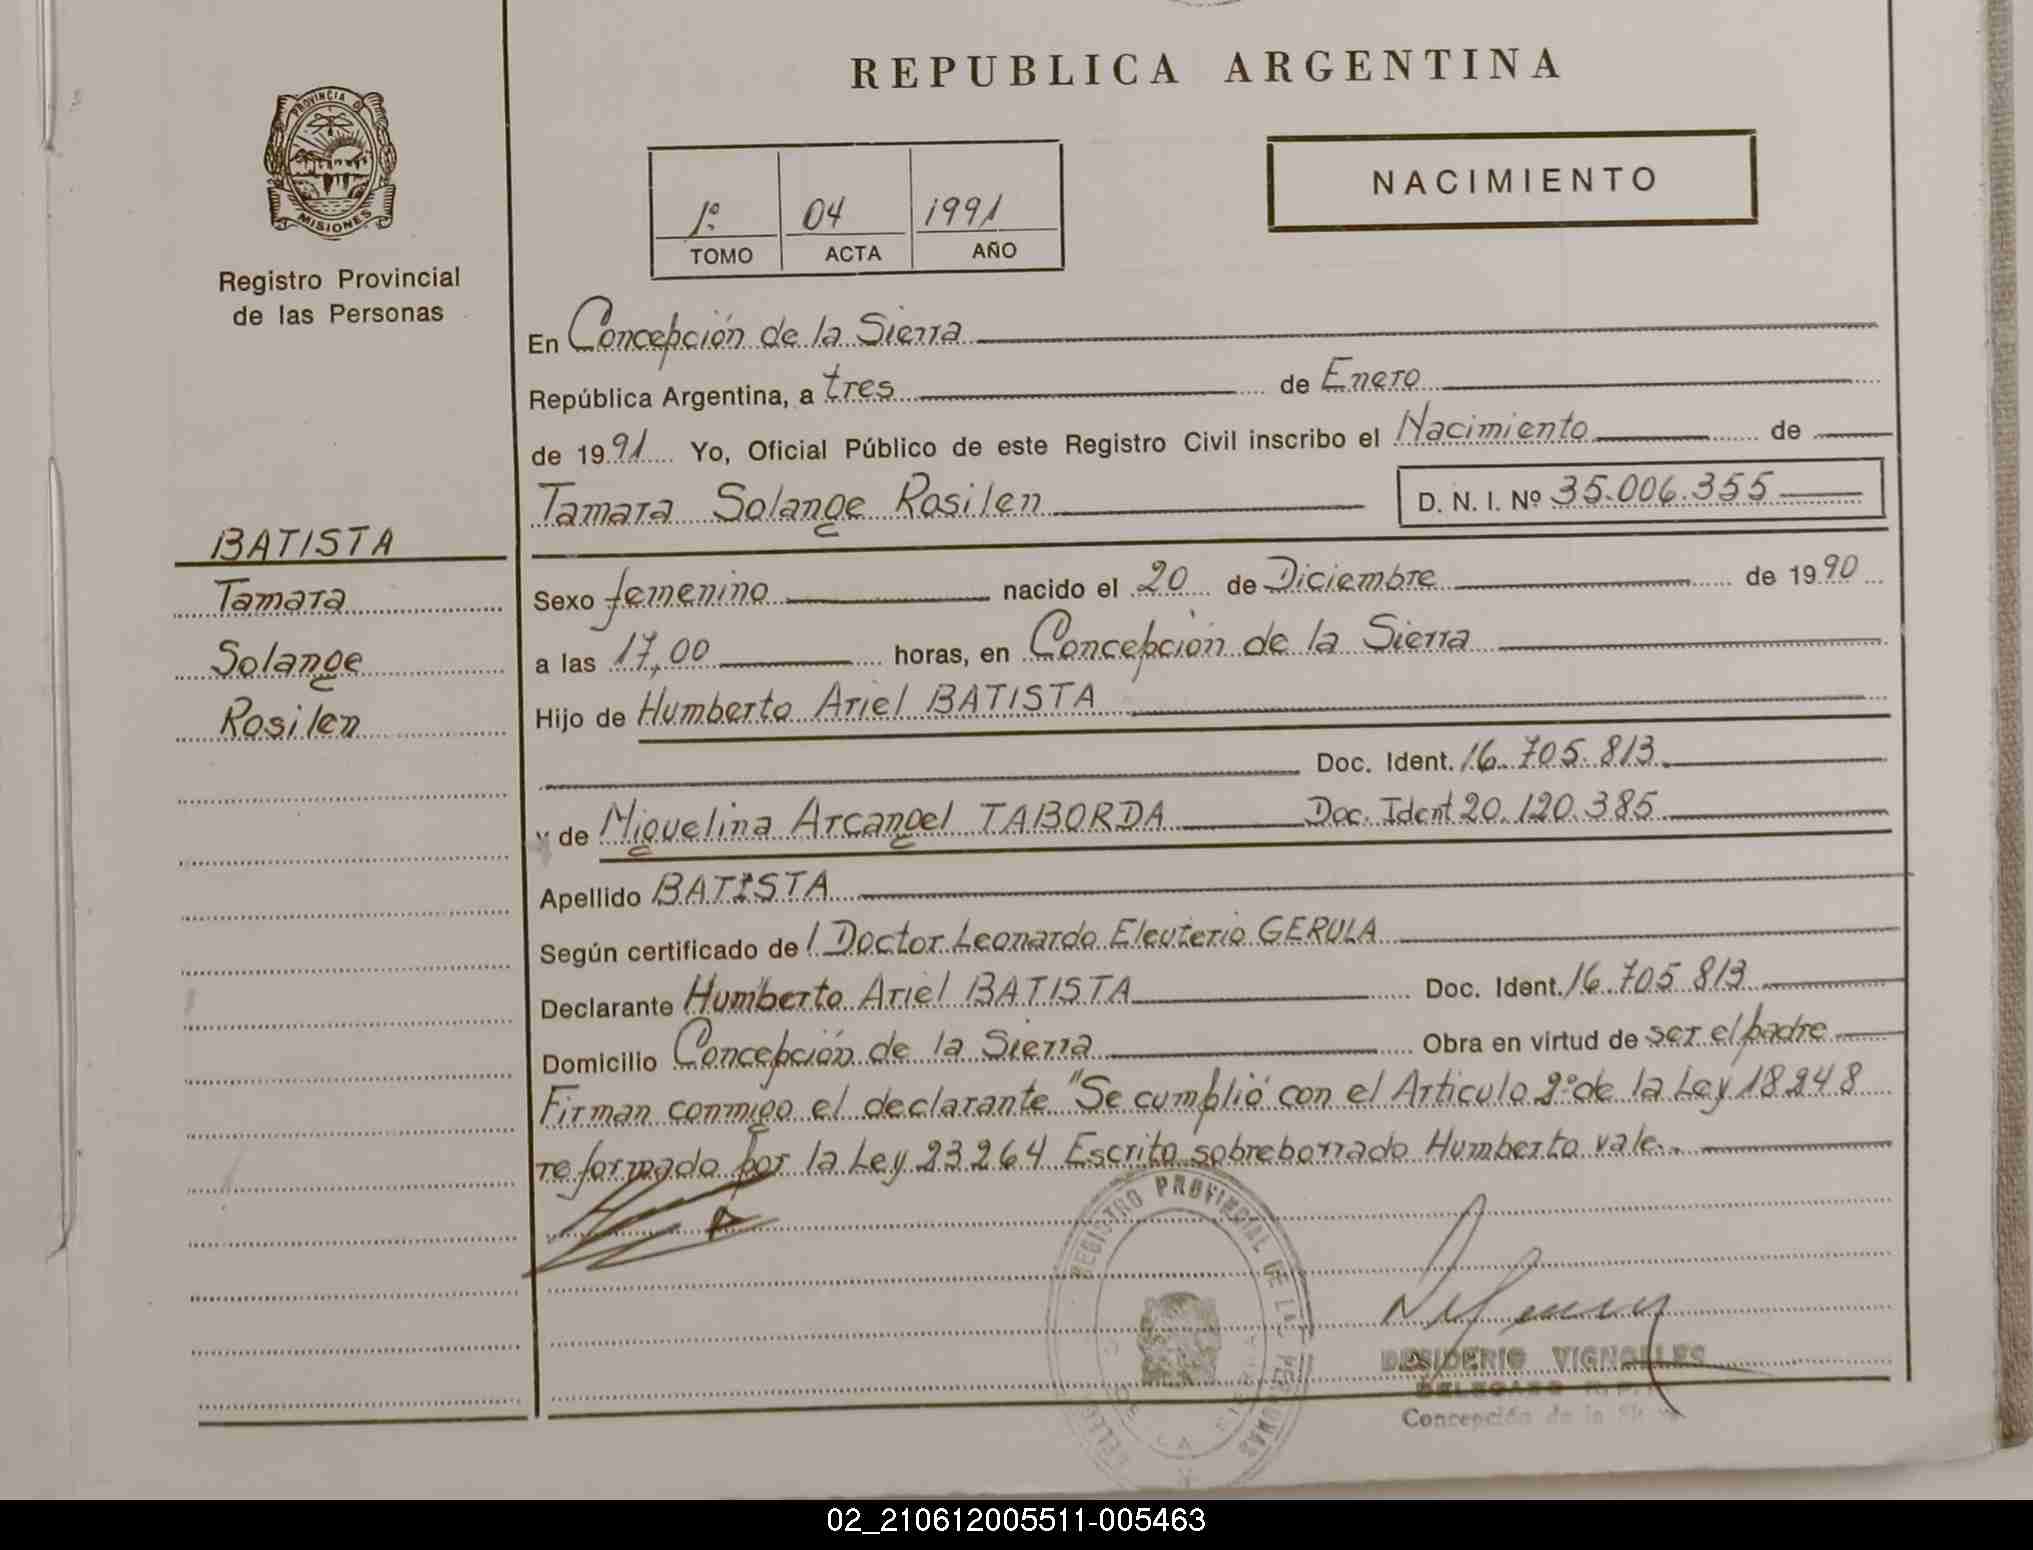 REPUBLICA ARGENTINA
PROVINCIA D
MISIONES
Registro Provincial
de las Personas
NACIMIENTO
1º 04 1991
TOMO ACTA AÑO
En Concepción de la Sierra
República Argentina, a tres de Enero
de 1991 Yo, Oficial Público de este Registro Civil inscribo el Nacimiento de
Tamara Solange Rosilen D. N. I. Nº 35.006.355
BATISTA
Tamara
Solange
Rosilen
Sexo femenino nacido el 20 de Diciembre de 1990
a las 17,00 horas, en Concepción de la Sierra
Hijo de Humberto Ariel BATISTA
Doc. Ident. 16.705.813
y de Miguelina Arcangel TABORDA Doc. Ident 20.120.385
Apellido BATISTA
Según certificado de l Doctor Leonardo Eleuterio GERULA
Declarante Humberto Ariel BATISTA Doc. Ident. 16.705 813
Domicilio Concepción de la Sierra Obra en virtud de ser el padre
Firman conmigo el declarante "Se cumplió con el Articulo 2º de la Ley 18248
reformado por la Ley 23264 Escrito sobreborrado Humberto vale.
REGISTRO PROVINCIAL DE LAS PERSONAS
DESIDERIO VIGNOLLES
DELEGADO R. P.
Concepción de la Sierra
02_210612005511-005463